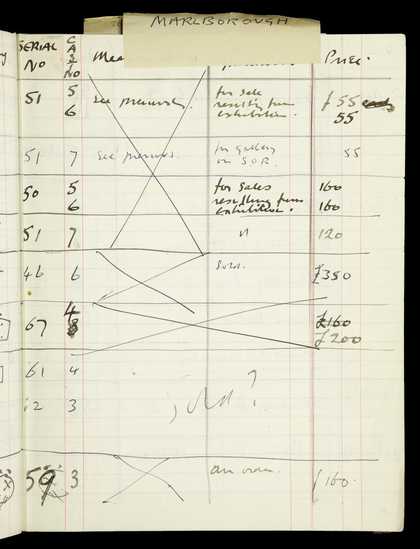 MARLBOROUGH
SERIAL No CASTNo Me Price.
51 5 see previously. for sale £55 each
6 resulting from exhibition. 55
51 7 see previous. for gallery on S.O.R. 55
50 5 for sales 160
6 resulting from exhibition. 160
51 7 " 120
46 6 Sold. £350
67 4 £160
8 £200
61 4
62 3 sold?
59 3 £160.